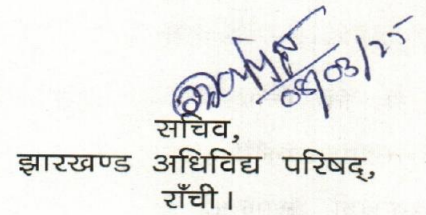 08/03/25
सचिव,
झारखण्ड अधिविद्य परिषद्,
राँची।